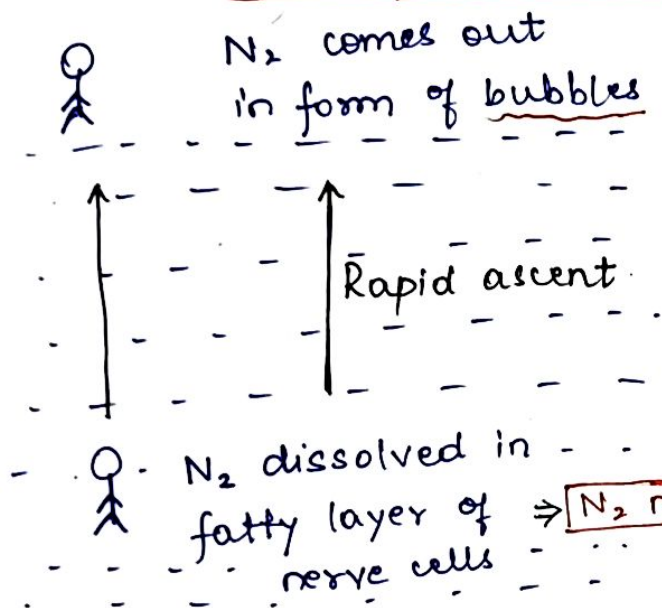 N₂ comes out
in form of bubbles
Rapid ascent
N₂ dissolved in
fatty layer of ⇒ N₂
nerve cells